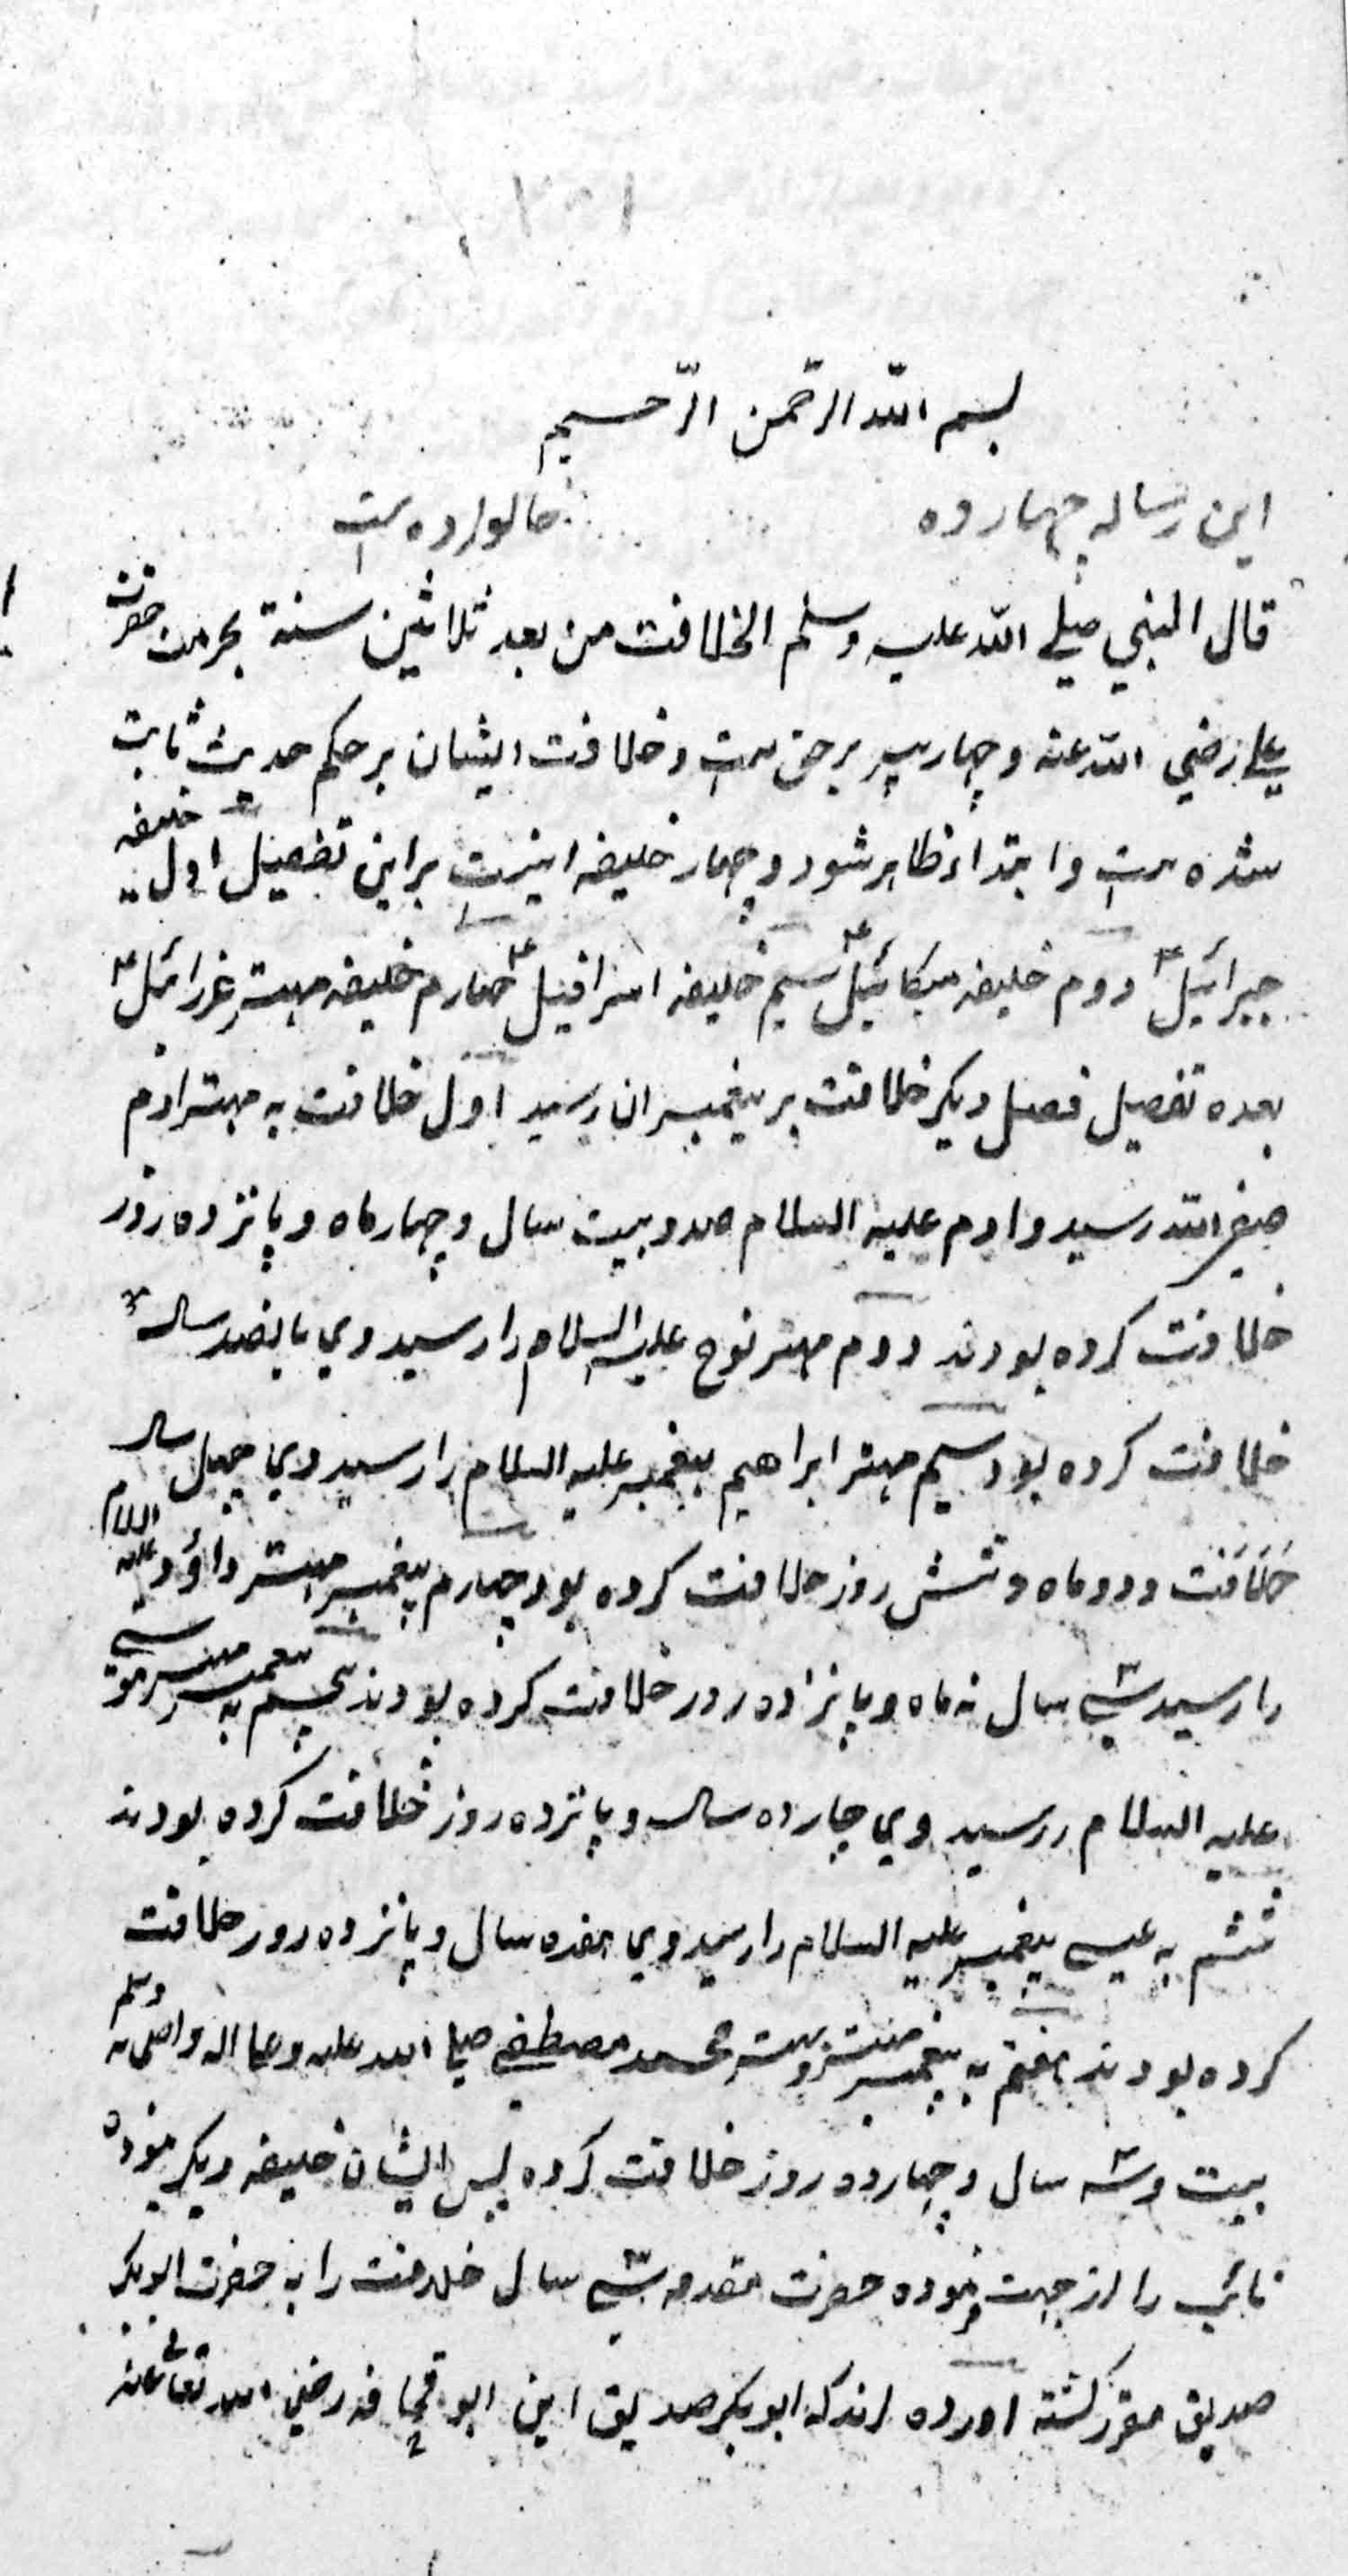 بسم الله الرحمن الرحیم
این رساله چهارده خانواده است
قال النبی صلی الله علیه وسلم الخلافت من بعد ثلاثین سنة بحرمت حضرت
علی رضی الله عنه و چهار پیر برحق است و خلافت ایشان بر حکم حدیث ثابت
شده است و ابتداء ظاهر شود و چهار خلیفه اینست براین تفصیل اول خلیفه
جبرائیل ع دوم خلیفه میکائیل ع سیم خلیفه اسرافیل ع چهارم خلیفه مهتر عزرائیل ع
بعده تفصیل فصل دیگر خلافت بر پیغمبران رسید اول خلافت به مهتر ادم
صفی الله رسید و ادم علیه السلام صد و بیست سال و چهار ماه و پانزده روز
خلافت کرده بودند دوم مهتر نوح علیه السلام را رسید وی پانصد سال
خلافت کرده بود سیم مهتر ابراهیم پیغمبر علیه السلام را رسید وی چهل سال
خلافت و دو ماه و شش روز خلافت کرده بود چهارم پیغمبر مهتر داؤد علیه السلام
را رسید سی سال نه ماه و پانزده روز خلافت کرده بودند پنجم به پیغمبر مهتر موسی
علیه السلام رسید وی چارده سال و پانزده روز خلافت کرده بودند
ششم به عیسی پیغمبر علیه السلام را رسید وی هفده سال و پانزده روز خلافت
کرده بودند هفتم به پیغمبر محمد مصطفی صلی الله علیه وعلی اله واصحابه وسلم
بیست و سه سال و چهارده روز خلافت کرده پس ایشان خلیفه دیگر نموده
نائب را از جهت نموده حضرت مقدمه سی سال خلافت را به حضرت ابوبکر
صدیق مقرر گشته اورده اند که ابوبکر صدیق ابن ابو قحافه رضی الله تعالی عنه